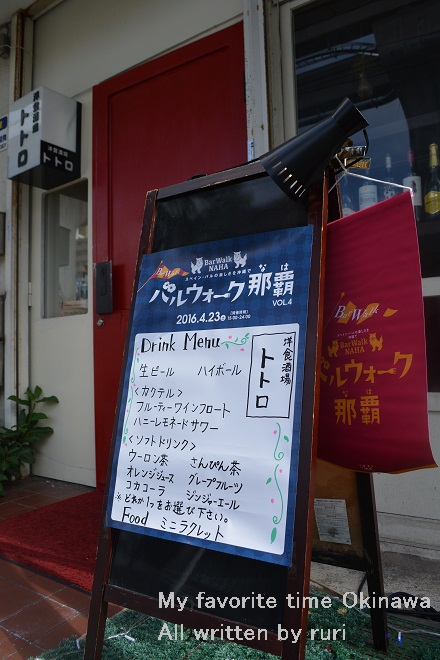 洋食酒場
トトロ
洋食酒場
トトロ
Bar Walk
BarWalk
NAHA
スペイン・バルの楽しさを沖縄で
バルウォーク那覇
なは
VOL.4
2016.4.23土
15:00-24:00
Drink Menu
洋食酒場
トトロ
生ビール ハイボール
<カクテル>
フルーティーワインフロート
ハニーレモネードサワー
<ソフトドリンク>
ウーロン茶 さんぴん茶
オレンジジュース グレープフルーツ
コカコーラ ジンジャーエール
※どれか1つをお選び下さい。
Food ミニラクレット
Bar Walk
BarWalk
NAHA
バルウォーク
那覇
My favorite time Okinawa
All written by ruri